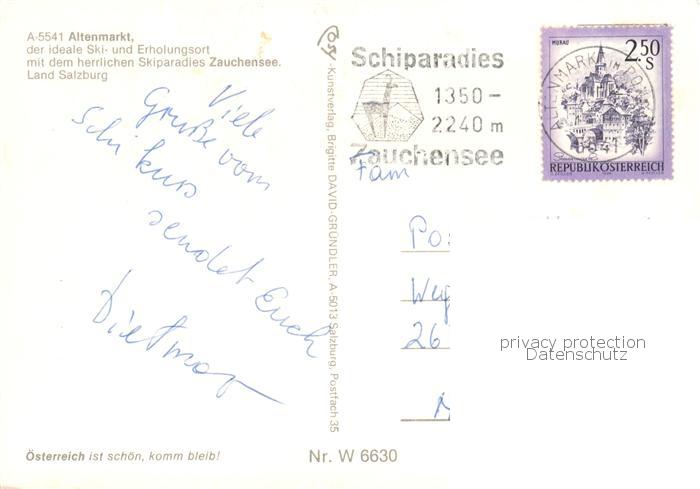 A-5541 Altenmarkt,
der ideale Ski- und Erholungsort
mit dem herrlichen Skiparadies Zauchensee.
Land Salzburg
Viele
Grüße vom
Schikurs
sendet Euch
Dietmar
Österreich ist schön, komm bleib!
Cosy-Kunstverlag, Brigitte DAVID-GRÜNDLER, A-5013 Salzburg, Postfach 35
Nr. W 6630
Schiparadies
1350 –
2240 m
Zauchensee
MURAU
2.50
S
REPUBLIK ÖSTERREICH
Fam
Po
Weg
26
privacy protection
Datenschutz